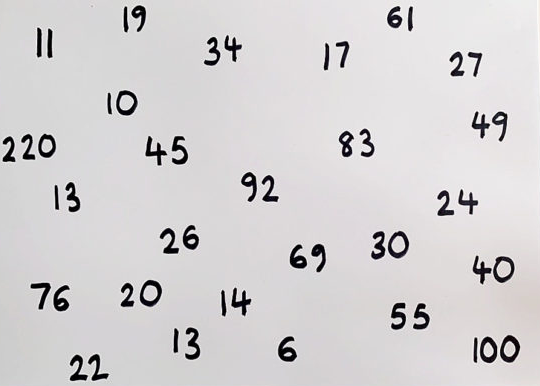 19
61
11
34
17
27
10
49
220
45
83
13
92
24
26
69
30
40
76
20
14
55
13
6
100
22